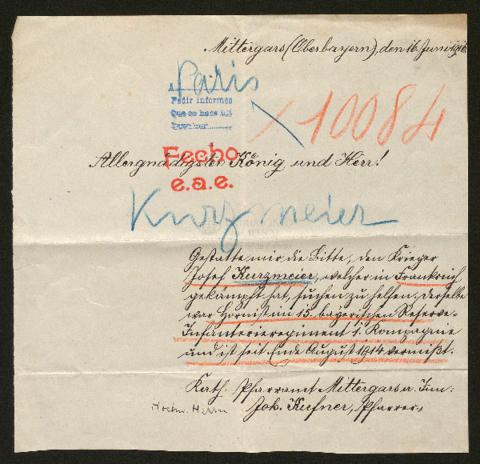 Mittergars (Oberbayern), den 16. Juni 191
Paris
Pedir informes
Que se hace
10084
Allergnädigster König und Herr!
Fecho
e.a.e.
Kurzmeier
Gestatte mir die Bitte, den Krieger
Josef Kurzmeier, welcher in Frankreich
gekämpft hat, suchen zu helfen; derselbe
war Hornist im 15. bayerischen Reserve-
Infanterieregiment 1. Kompagnie
und ist seit Ende August 1914 vermißt.
Kath. Pfarramt Mittergars a. Inn:
Joh. Kufner, Pfarrer,